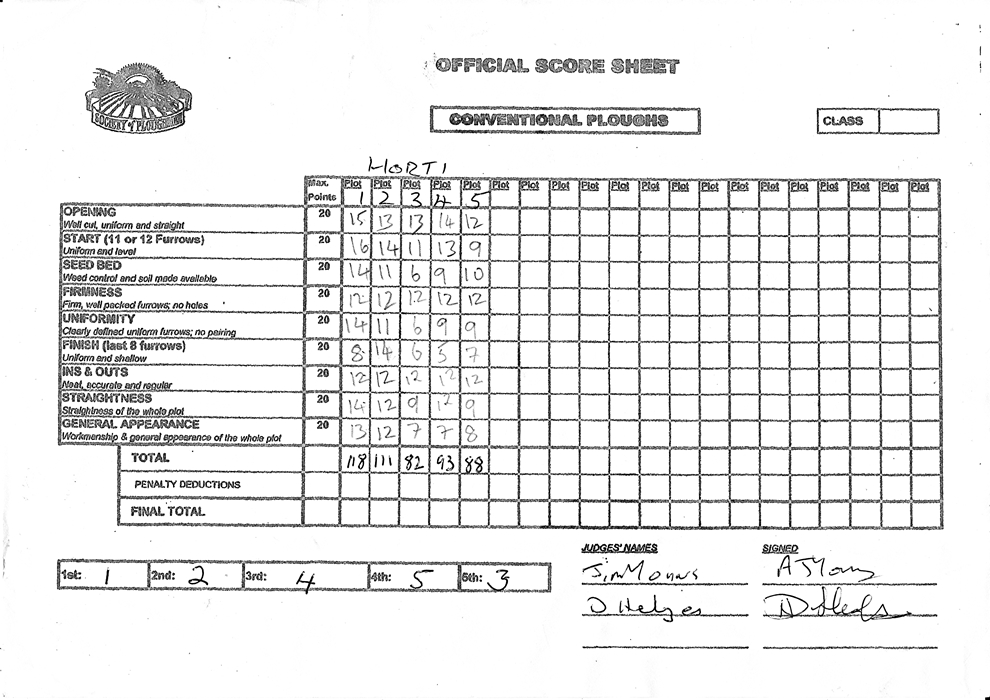 OFFICIAL SCORE SHEET
SOCIETY of PLOUGHMEN
CONVENTIONAL PLOUGHS
CLASS
HORTI
Max. Points Plot 1 Plot 2 Plot 3 Plot 4 Plot 5 Plot Plot Plot Plot Plot Plot Plot Plot Plot Plot Plot Plot Plot Plot Plot
OPENING 20 15 13 13 14 12
Well cut, uniform and straight
START (11 or 12 Furrows) 20 16 14 11 13 9
Uniform and level
SEED BED 20 14 11 6 9 10
Weed control and soil made available
FIRMNESS 20 12 12 12 12 12
Firm, well packed furrows; no holes
UNIFORMITY 20 14 11 6 9 9
Clearly defined uniform furrows; no pairing
FINISH (last 8 furrows) 20 8 14 6 5 7
Uniform and shallow
INS & OUTS 20 12 12 12 12 12
Neat, accurate and regular
STRAIGHTNESS 20 14 12 9 12 9
Straightness of the whole plot
GENERAL APPEARANCE 20 13 12 7 7 8
Workmanship & general appearance of the whole plot
TOTAL 118 111 82 93 88
PENALTY DEDUCTIONS
FINAL TOTAL
JUDGES' NAMES SIGNED
1st: 1 2nd: 2 3rd: 4 4th: 5 5th: 3
Jim
D